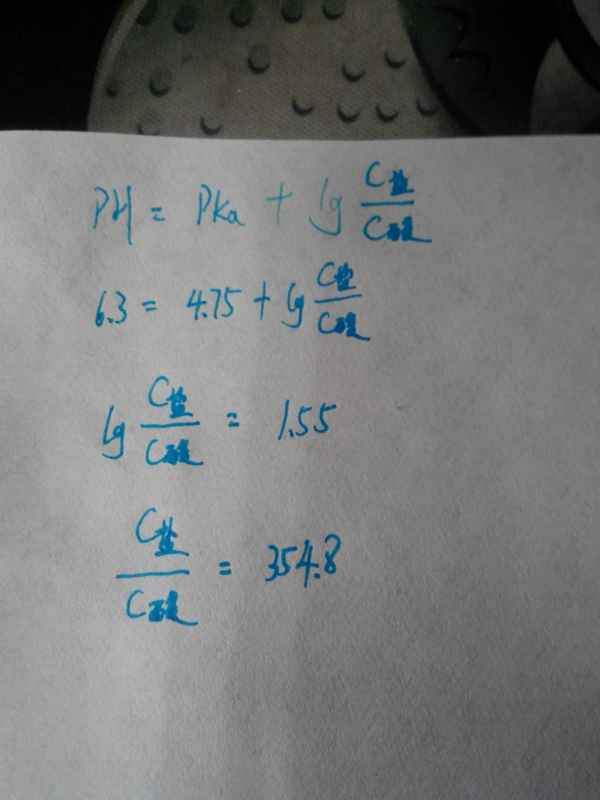 PH = PKa + lg C盐/C酸
6.3 = 4.75 + lg C盐/C酸
lg C盐/C酸 = 1.55
C盐/C酸 = 354.8